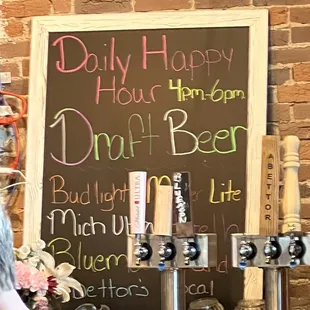 Daily Happy
Hour 4pm-6pm
Draft Beer
Bud light Lite
Mich Ul
Bluem
ettors local
ABETTOR